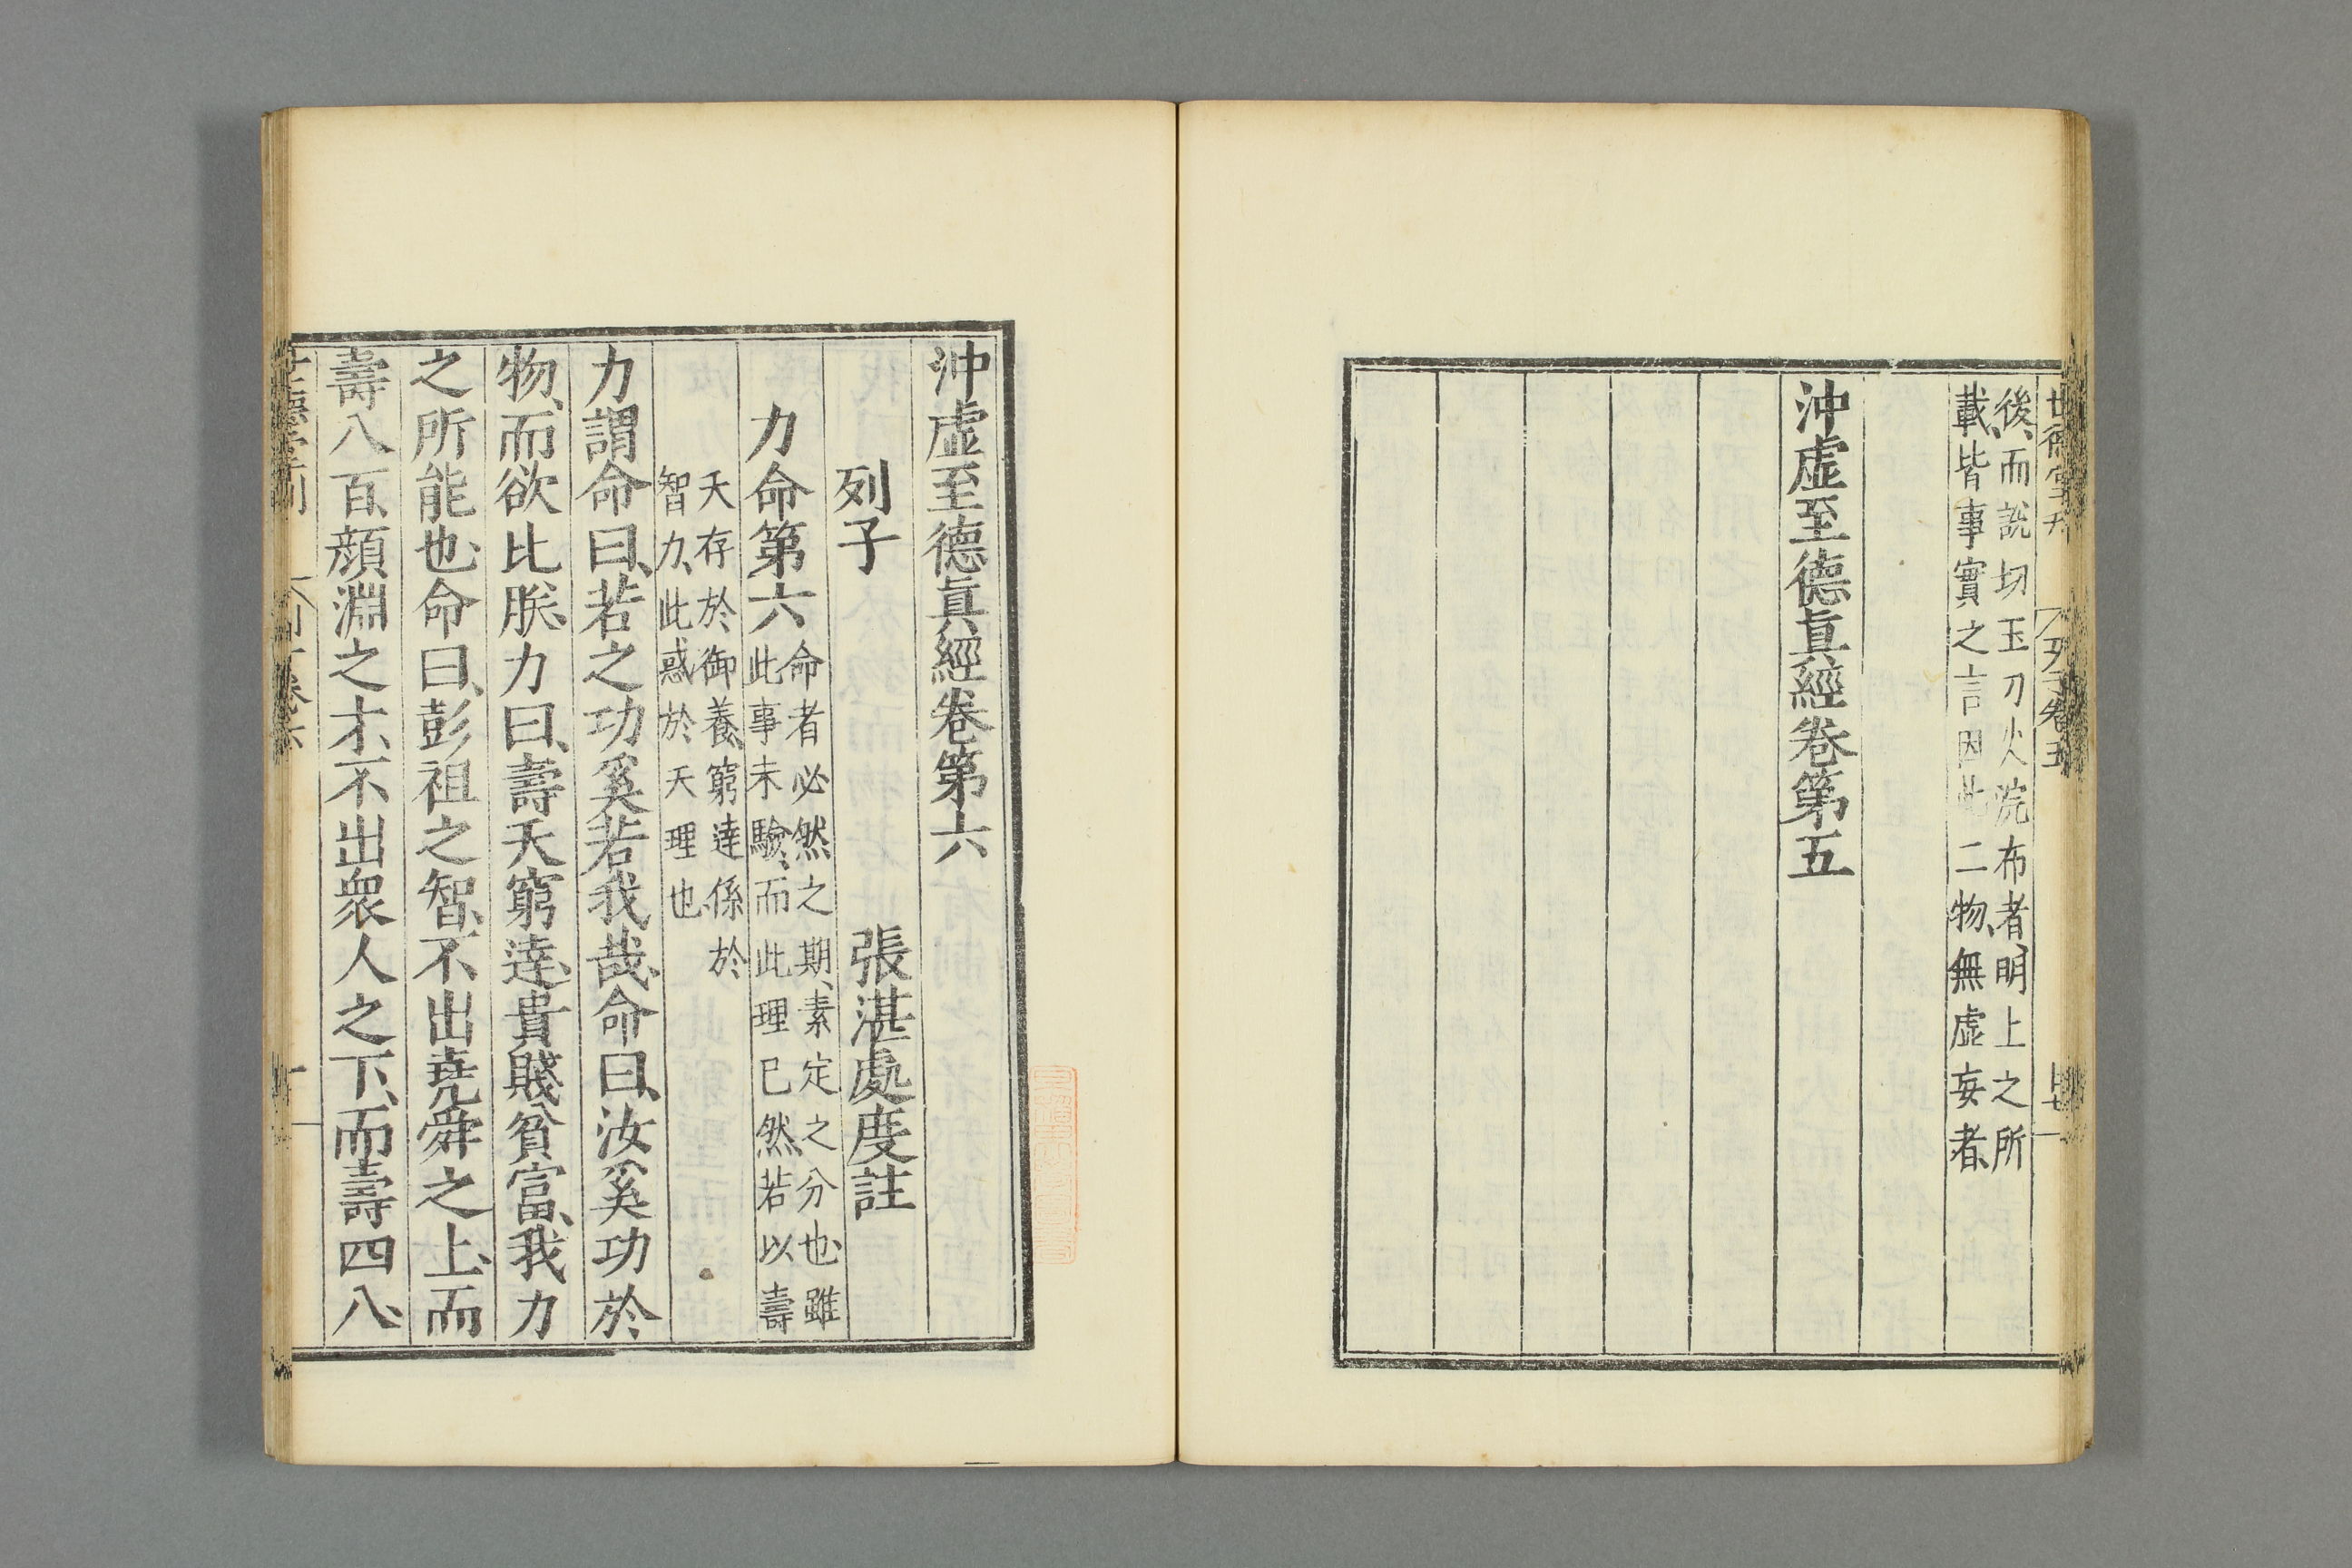 後、而說切玉刀火浣布者、明上之所
載、皆事實之言因此二物、無虛妄者、
沖虛至德眞經卷第五
沖虛至德眞經卷第六
列子 張湛處度註
力命第六
命者必然之期、素定之分也、雖
此事未驗、而此理已然、若以壽
夭存於御養、窮達係於
智力、此惑於天理也
力謂命曰、若之功奚若我哉、命曰、汝奚功於
物、而欲比朕、力曰、壽夭窮達、貴賤貧富、我力
之所能也、命曰、彭祖之智、不出堯舜之上、而
壽八百、顔淵之才、不出衆人之下、而壽四八、